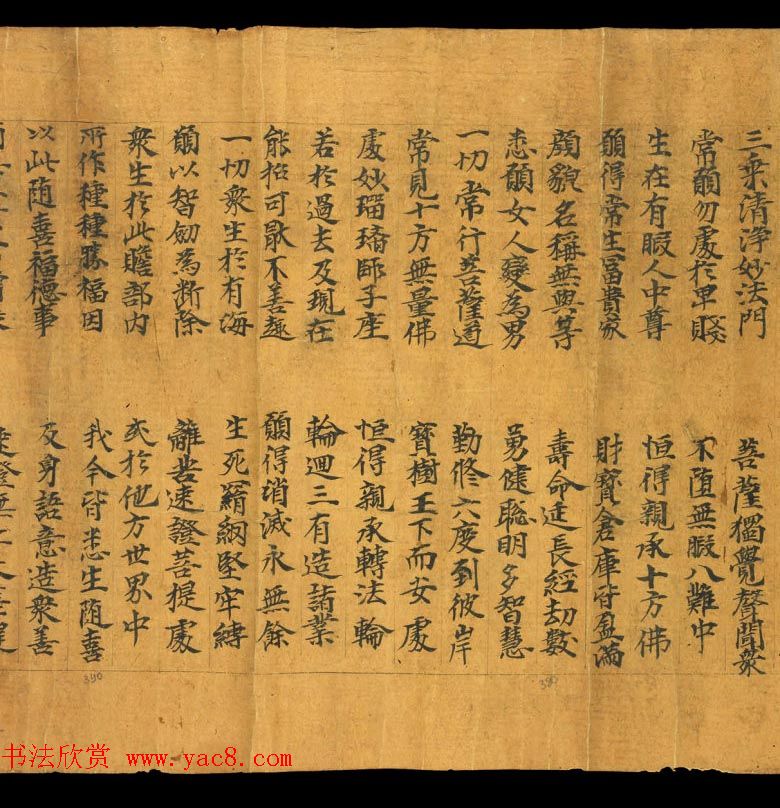 三乘清淨妙法門 菩薩獨覺聲聞衆
常願勿處於卑賤 不墮無暇八難中
生在有暇人中尊 恒得親承十方佛
願得常生富貴家 財寶倉庫皆盈滿
顏貌名稱無與等 壽命延長經劫數
悉願女人變為男 勇健聡明多智慧
一切常行菩薩道 勤修六度到彼岸
常見十方無量佛 寶樹王下而安處
處妙瑠璃師子座 恒得親承轉法輪
若於過去及現在 輪迴三有造諸業
能招可猒不善趣 願得消滅永無餘
一切衆生於有海 生死羂網堅牢縛
願以智劒為斷除 離苦速證菩提處
衆生於此贍部內 或於他方世界中
所作種種勝福因 我今皆悉生随喜
以此随喜福德事 及身語意造衆善
390
390
书法欣赏 www.yac8.com